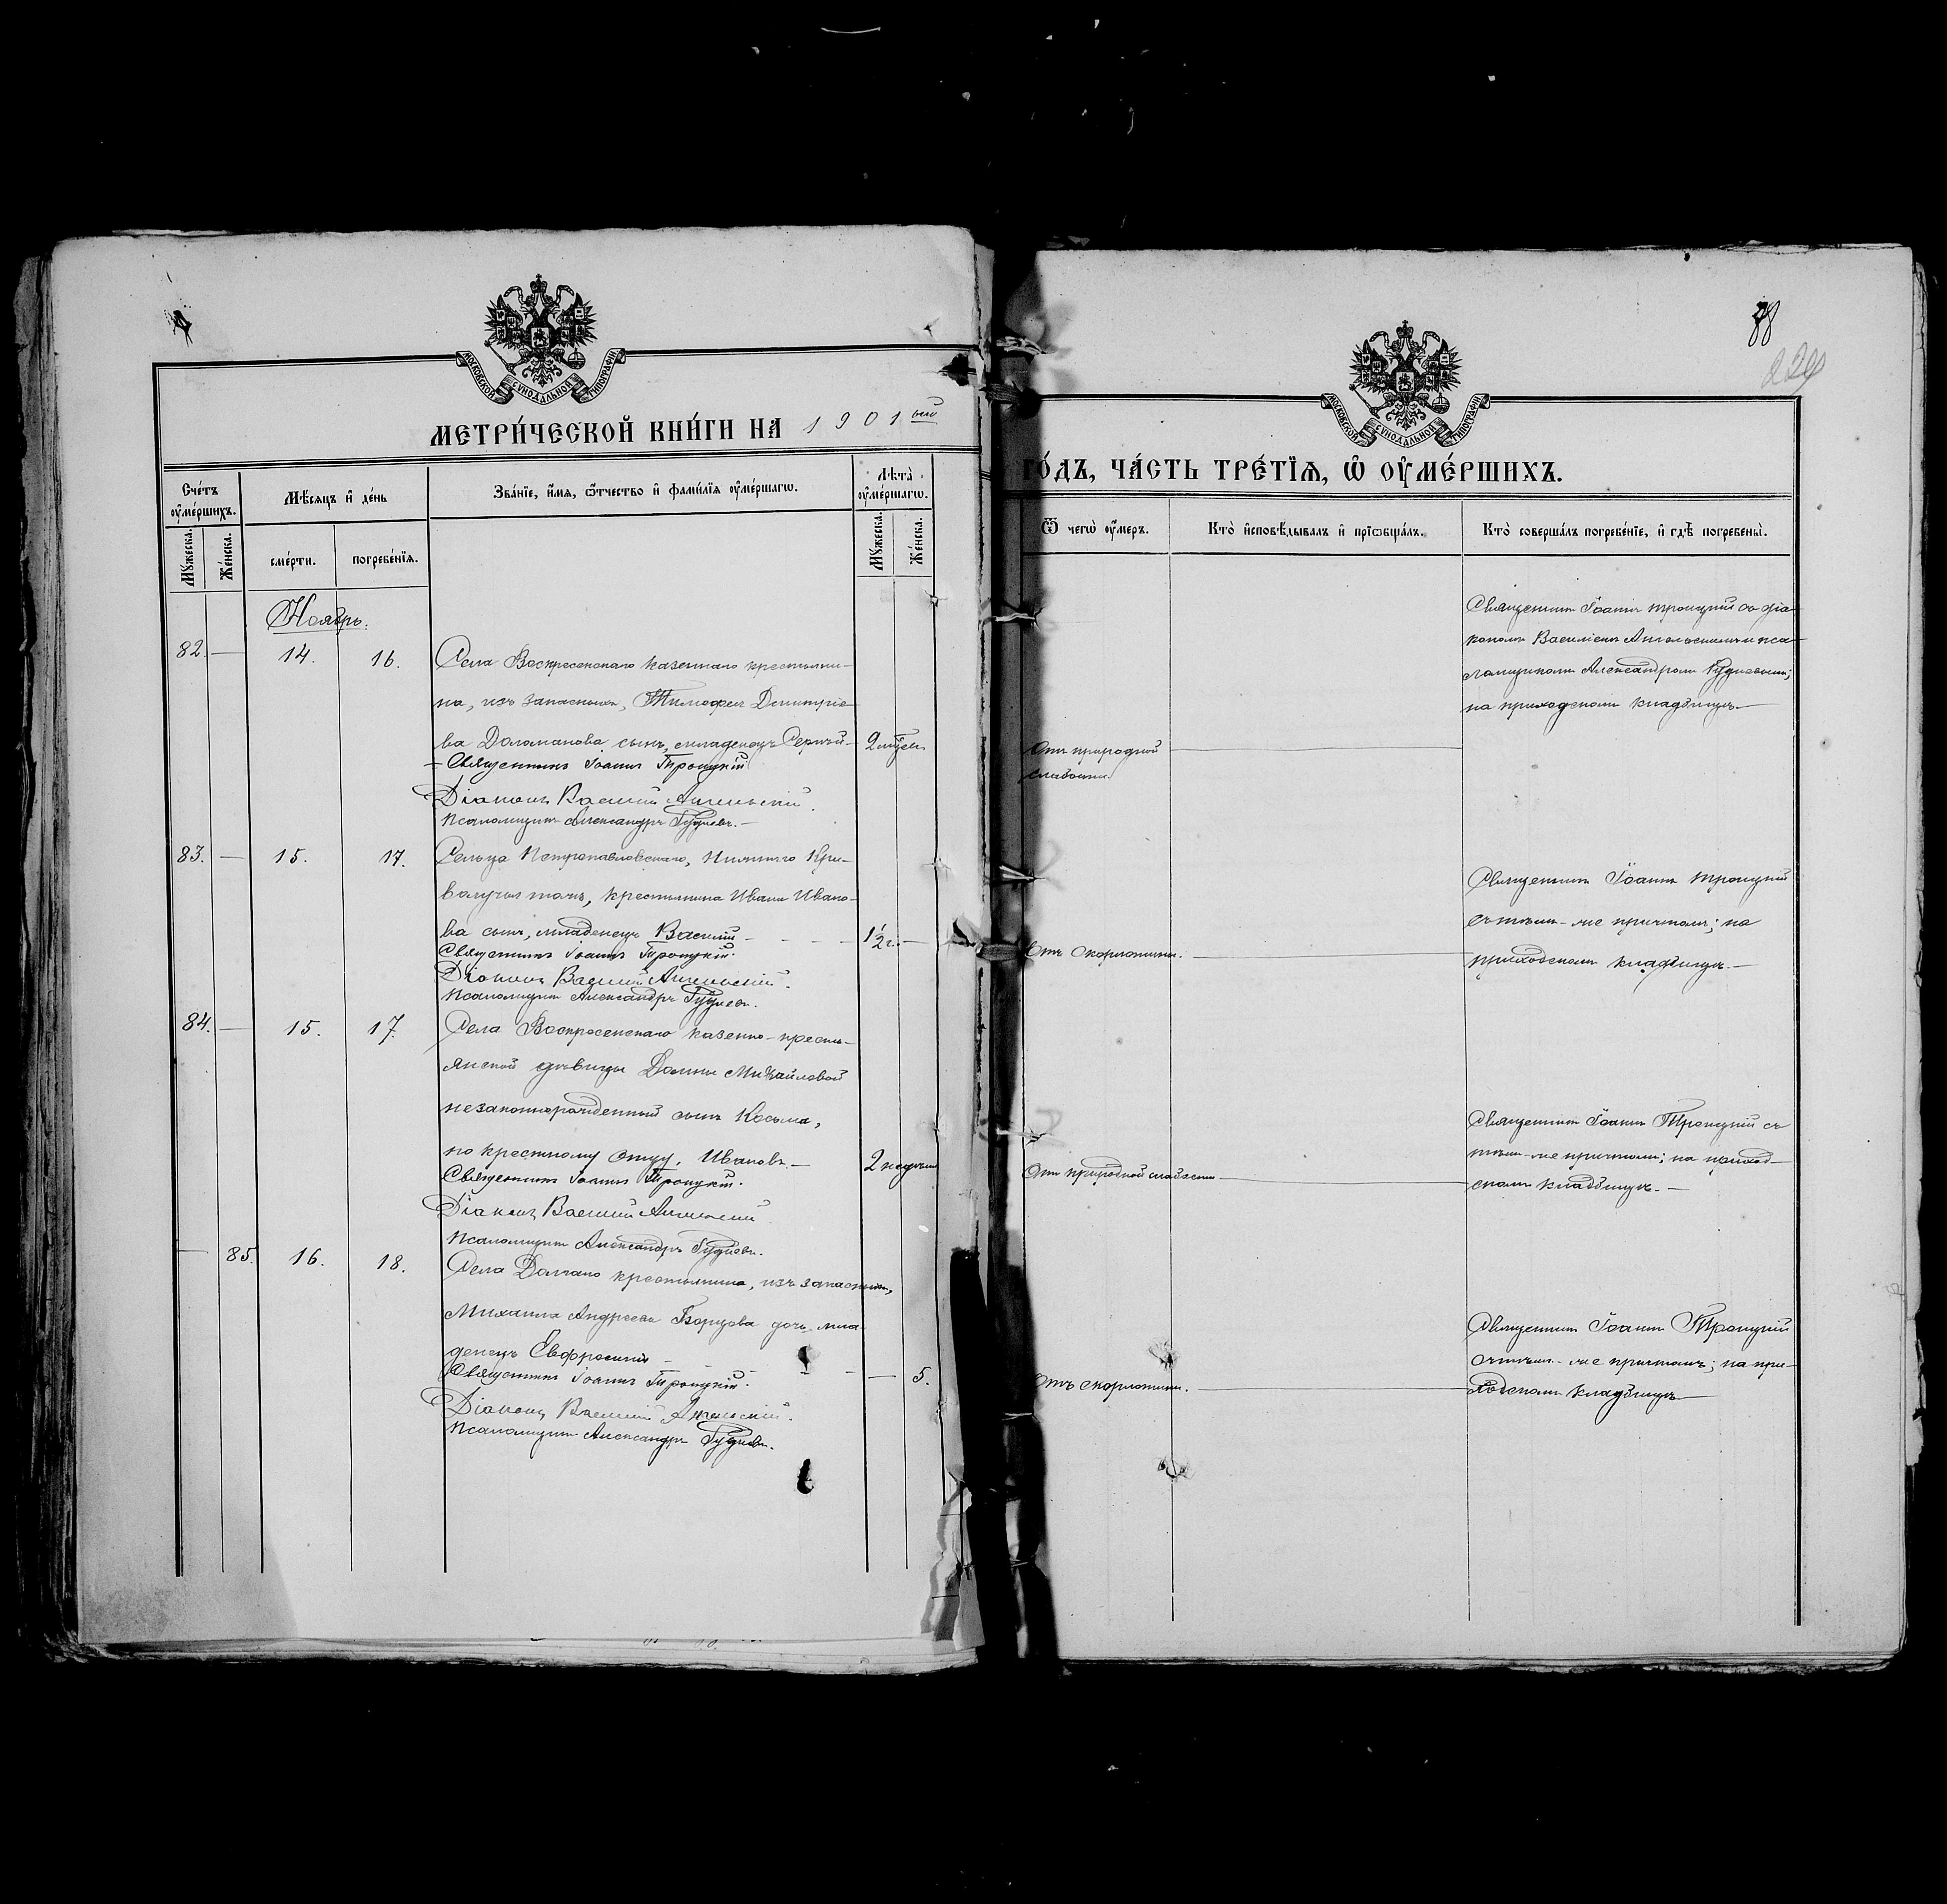 МОСКОВСКОЙ СУНОДАЛЬНОЙ ТИПОГРАФІИ
МЕТРИ́ЧЕСКОЙ КНИ́ГИ НА 1901ый
Сче́тъ ᲂу҆ме́ршихъ.
Мꙋ́жеска.
Же́нска.
Мѣ́сяцъ и҆ де́нь
сме́рти.
погребе́нїѧ.
Зва́нїе, и҆́мѧ, ѻ҆́тчество и҆ фами́лїѧ ᲂу҆ме́ршагѡ.
Лѣ́та ᲂу҆ме́ршагѡ.
Мꙋ́жеска.
Же́нска.
Ноябрь.
82. — 14. 16.
Села Воскресенскаго казеннаго крестьяни-
на, изъ запасныхъ, Тимофея Димитріе-
ва Доломанова сынъ, младенецъ Сергѣй — 2
Священникъ Іоаннъ Троицкій
Діаконъ Василій Ангельскій.
Псаломщикъ Александръ Гудневъ. —
83. — 15. 17.
Сельца Петропавловскаго, Нижняго Кри-
волучья тожъ, крестьянина Ивана Ивано-
ва сынъ, младенецъ Василій — 1½ г. —
Священникъ Іоаннъ Троицкій.
Діаконъ Василій Ангельскій.
Псаломщикъ Александръ Гудневъ.
84. — 15. 17.
Села Воскресенскаго казенно-кресть-
янской дѣвицы Домны Михайловой
незаконнорожденный сынъ Косьма,
по крестному отцу, Ивановъ — 2 недѣли
Священникъ Іоаннъ Троицкій.
Діаконъ Василій Ангельскій
Псаломщикъ Александръ Гудневъ.
— 85. 16. 18.
Села крестьянина, изъ запасныхъ,
Михаила Андреева Борцова дочь, мла-
денецъ Евфросинія — — 5.
Священникъ Іоаннъ Троицкій.
Діаконъ Василій Ангельскій.
Псаломщикъ Александръ Гудневъ.
88
229
МОСКОВСКОЙ СУНОДАЛЬНОЙ ТИПОГРАФІИ
ГО́ДЪ, ЧА́СТЬ ТРЕ́ТЇѦ, Ѡ҆ ОУ҆МЕ́РШИХЪ.
Ѿ чегѡ̀ ᲂу҆́меръ.
Кто̀ и҆сповѣ́дывалъ и҆ прїѡбща́лъ.
Кто̀ соверша́лъ погребе́нїе, и҆ гдѣ̀ погребены̀.
Священникъ Іоаннъ Троицкій со діа-
кономъ Василіемъ Ангельскимъ и пса-
ломщикомъ Александромъ Гудневымъ;
на приходскомъ кладбищѣ. —
Отъ природной
слабости.
Священникъ Іоаннъ Троицкій
съ тѣмъ-же причтомъ; на
приходскомъ кладбищѣ. —
Отъ скарлатины.
Священникъ Іоаннъ Троицкій съ
тѣмъ-же причтомъ; на приход-
скомъ кладбищѣ. —
Отъ природной слабости
Священникъ Іоаннъ Троицкій
съ тѣмъ-же причтомъ; на при-
ходскомъ кладбищѣ —
Отъ скарлатины.